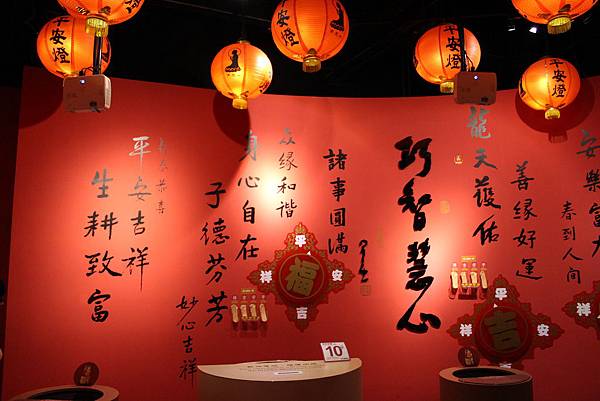 平安燈
平安燈
平安燈
平安燈
平安燈
龍天護佑
善緣好運
春到人間
巧智慧心
諸事圓滿
眾緣和諧
身心自在
子德芬芳
妙心吉祥
平安吉祥
生耕致富
平
祥 福 安
吉
平
祥 吉 安
祥
10